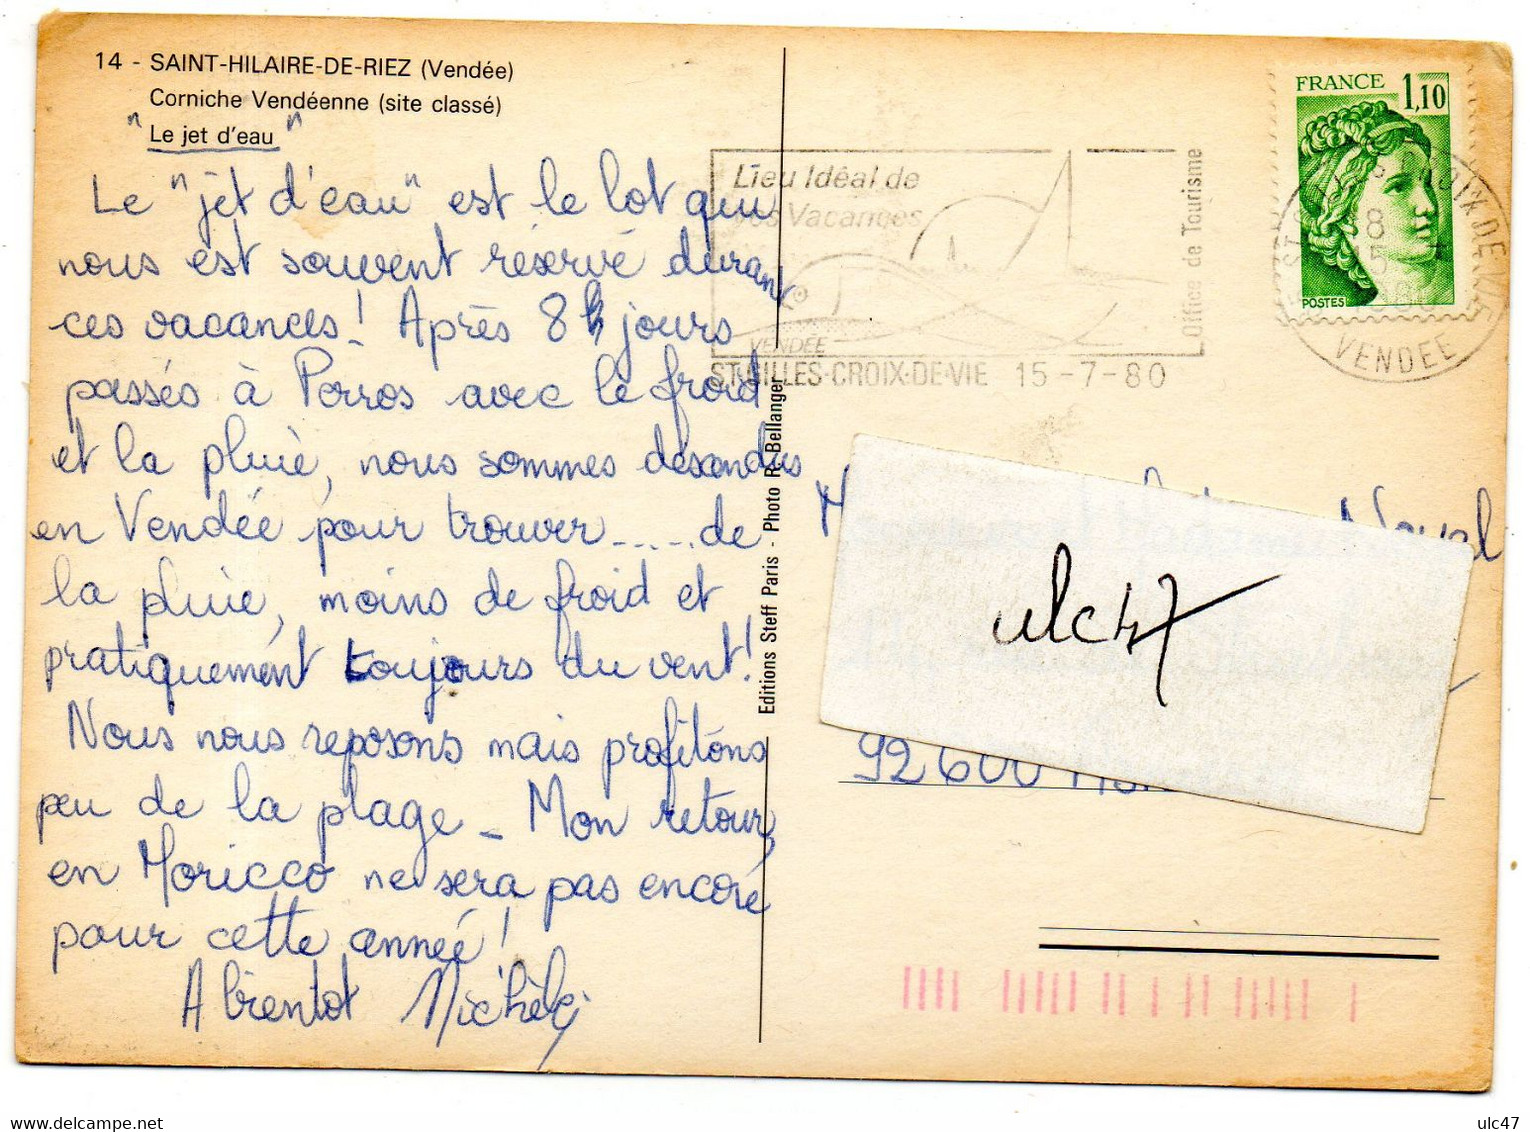 14 - SAINT-HILAIRE-DE-RIEZ (Vendée)
Corniche Vendéenne (site classé)
"Le jet d'eau"
Le "jet d'eau" est le lot qui
nous est souvent réservé durant
ces vacances! Après 8 jours
passés à Perros avec le froid
et la pluie, nous sommes descendus
en Vendée pour trouver ..... de
la pluie, moins de froid et
pratiquement toujours du vent!
Nous nous reposons mais profitons
peu de la plage - Mon retour
en Moricco ne sera pas encore
pour cette année!
A bientot Michèle
Editions Steff Paris - Photo R. Bellanger
Lieu Idéal de
Vos Vacances
VENDÉE
Office de Tourisme
ST-GILLES-CROIX-DE-VIE 15-7-80
FRANCE 1,10
POSTES
CROIX DE VIE
18 H
15 - 7
VENDEE
ulc47
92600
ulc47